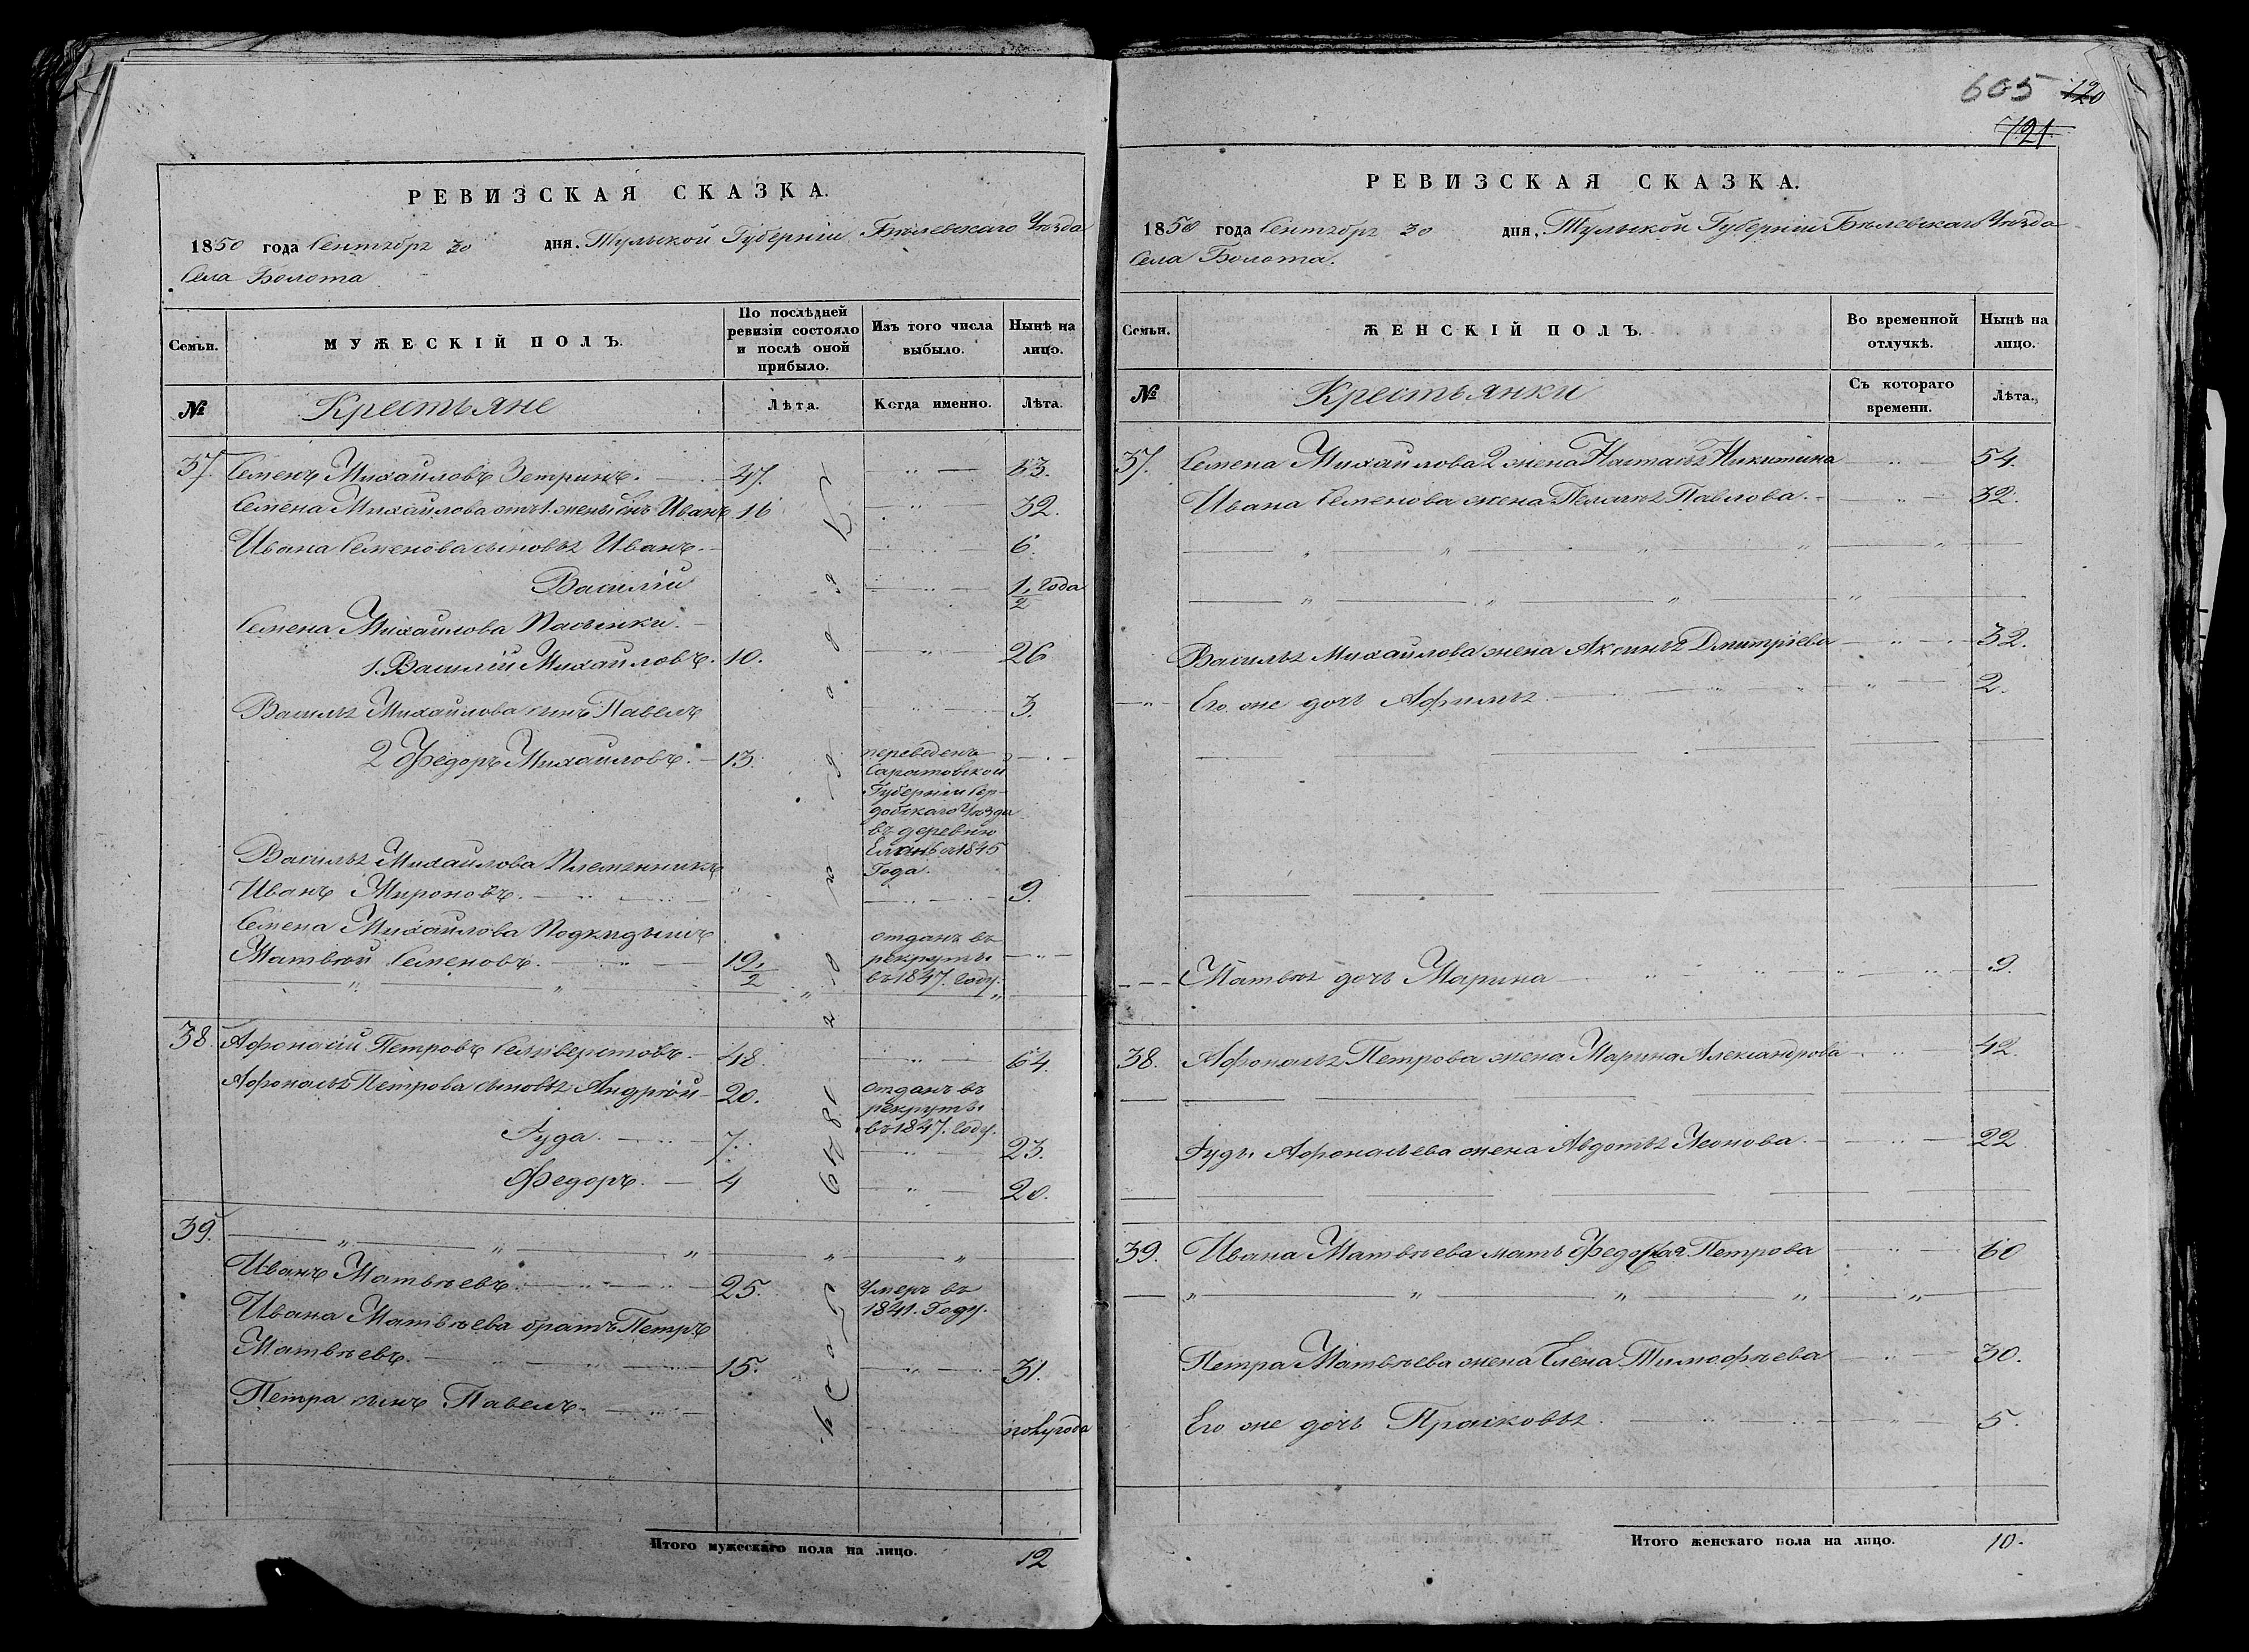 РЕВИЗСКАЯ СКАЗКА.
1850 года Сентября 30 дня. Тульской Губерніи Бѣлевскаго Уѣзда
Села Болота
Семьи.
МУЖЕСКІЙ ПОЛЪ.
По послѣдней
ревизіи состояло
и послѣ оной
прибыло.
Изъ того числа
выбыло.
Нынѣ на
лицо.
№ Крестьяне Лѣта. Когда именно. Лѣта.
37. Семенъ Михайловъ 47. 63.
Семена Михайлова отъ 1. жены сынъ Иванъ 16 32.
Ивана Семенова сыновья Иванъ. 6.
Василій 1/2 года
Семена Михайлова Пасынки.
1. Василій Михайловъ. 10. 26
Василья Михайлова сынъ Павелъ 3.
2 Федоръ Михайловъ. 13. переведенъ
Саратовской
Губерніи Сер-
добскаго Уѣзда
въ деревню
Елань въ 1845
Года.
Василья Михайлова Племянникъ
Иванъ Мироновъ. 9.
Семена Михайлова Подкидышъ
Матвѣй Семеновъ. 19 1/2 отданъ въ
рекруты
въ 1847. году.
38. Афонасій Петровъ Селиверстовъ. 48. 64.
Афонасья Петрова сыновья Андрѣй 20. отданъ въ
рекруты
въ 1847. году.
Іуда. 7. 23.
Федоръ. 4 20.
39.
Иванъ Матвѣевъ. 25. Умеръ въ
1841. Году.
Ивана Матвѣева братъ Петръ
Матвѣевъ. 15. 31.
Петра сынъ Павелъ. полугода
Итого мужескаго пола на лицо. 12
605 120
721.
РЕВИЗСКАЯ СКАЗКА.
1850 года Сентября 30 дня, Тульской Губерніи Бѣлевскаго Уѣзда
Села Болота.
Семьи.
ЖЕНСКІЙ ПОЛЪ.
Во временной
отлучкѣ.
Нынѣ на
лицо.
№ Крестьянки Съ котораго
времени. Лѣта.
37. Семена Михайлова 2 жена Настасья Никитина 54.
Ивана Семенова жена Пелагея Павлова. 32.
Василья Михайлова жена Аксинья Дмитріева 32.
Его же дочь Афимья 2.
Матвѣя дочь Марина 9.
38. Афонасья Петрова жена Марина Александрова 42.
Іуды Афонасьева жена Авдотья Леонова. 22
39. Ивана Матвѣева мать Федосья Петрова 60
Петра Матвѣева жена Елена Тимофѣева 30.
Его же дочь Прасковья. 5.
Итого женскаго пола на лицо. 10.